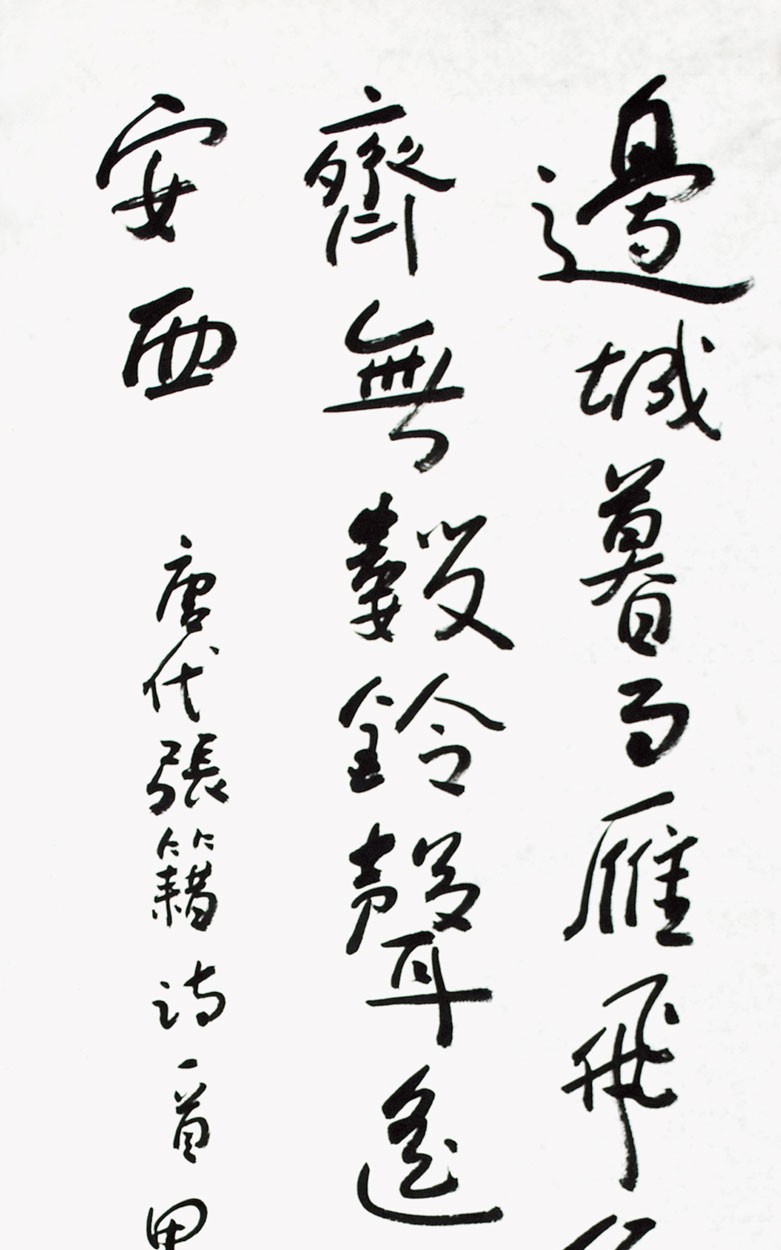 邊城暮雨雁飛
齊無數鈴聲遙
安西 唐代張籍詩一首